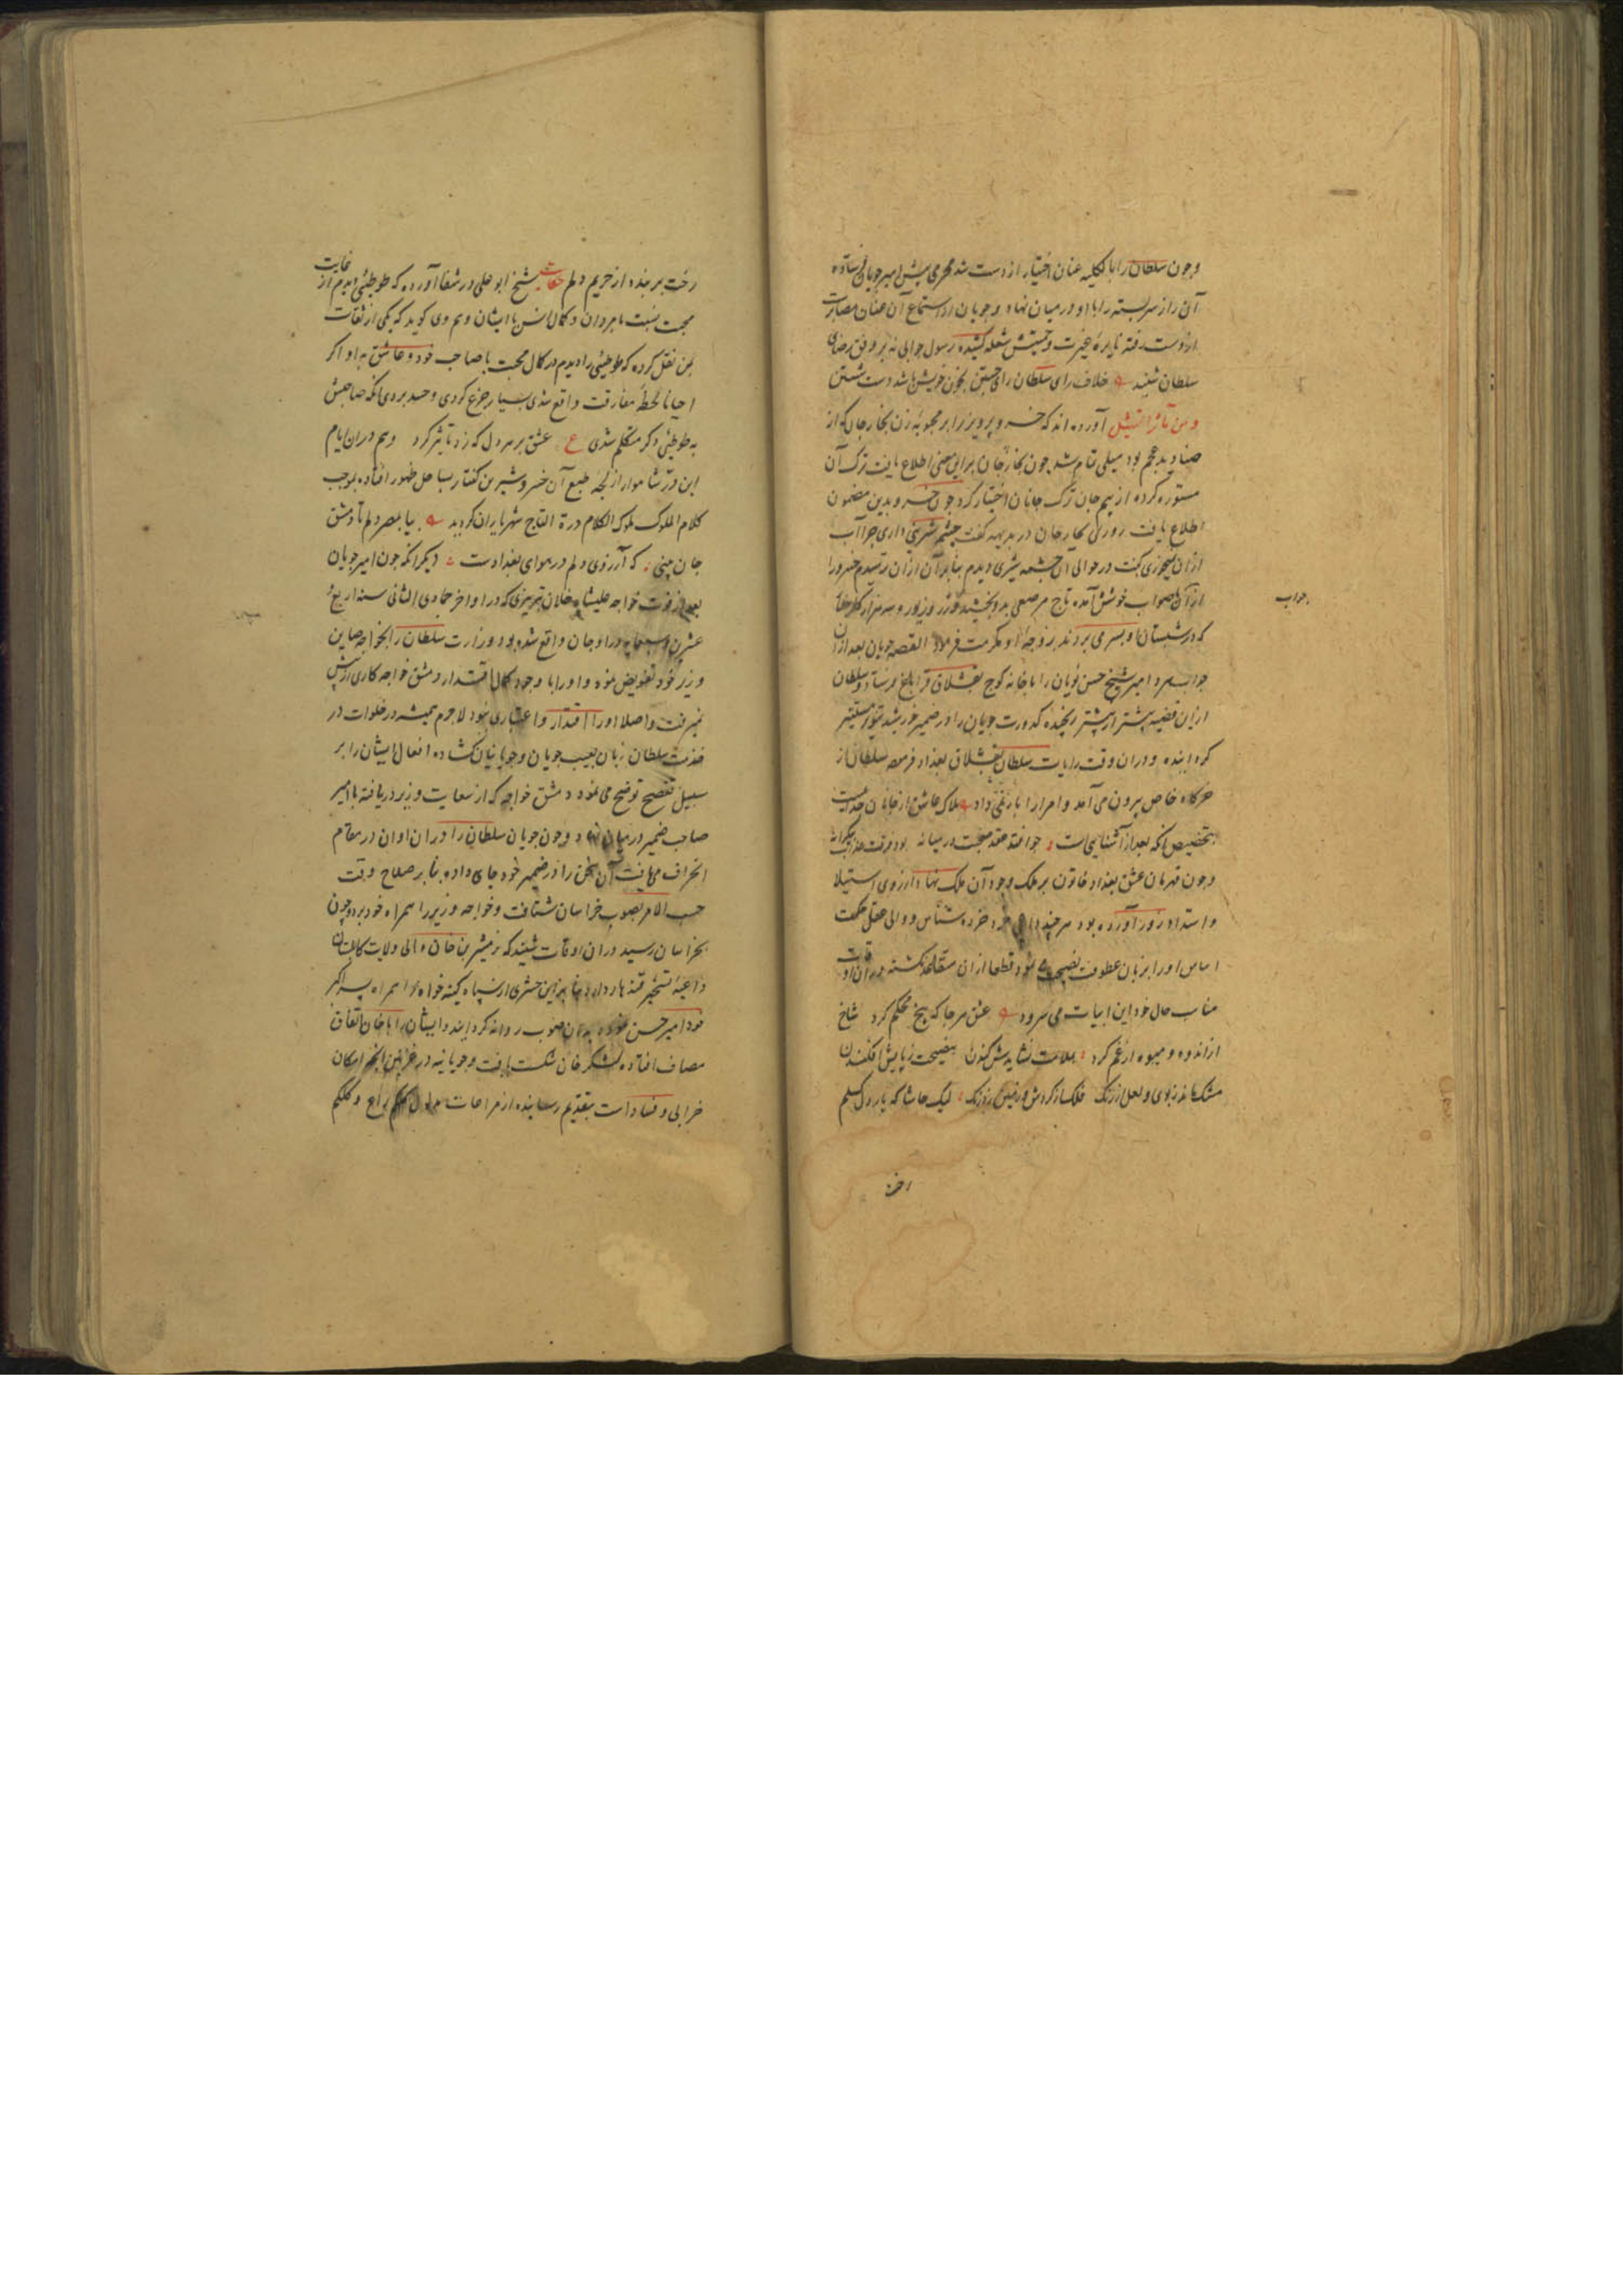 وچون سلطان را بالکلیه عنان اختیار از دست شد محرمی پیش امیر چوپان فرستاده
آن راز سربسته را با او در میان نهاد و چوپان را از استماع آن عنان مصابرت
از دست رفته نایره غیرت و حمیتش شعله کشیده رسول جوابی نه بر وفق رضای
سلطان شنید خلاف رای سلطان رای جستن بخون خویش باشد دست شستن
و من مآثر التمثیل آورده اند که خسرو پرویز را بر محبوبه زن نخارجان که از
صنادید عجم بود میلی تمام شد چون نخارجان براین معنی اطلاع یافت ترک آن
مستوره کرده از بیم جان ترک جانان اختیار کرد چون خسرو بدین مضمون
اطلاع یافت روزی نخارجان در بدیهه گفت چشمه شیرین داری چرا آب
از آن نمیخوری گفت در حوالی آن چشمه شیری دیدم بنابر آن از آن ترسیدم خسرو را
از آن جواب خوش آمده تاج مرصعی بدو بخشید و زر و زیور و سه هزار کنیزک
که در شبستان او بسر می بردند بزوجه او مکرمت فرمود القصه چوپان بعد از آن
جواب سرد امیر شیخ حسن نویان را با خانه کوچ بقشلاق قراباغ فرستاد و سلطان
ازین قضیه پیشتر از پیشتر رنجیده کدورت چوپان را در ضمیر خورشید تنویر مستتیر
گردانیده و در آن وقت رایات سلطان بقشلاق بغداد فرمود سلطان از
خرگاه خاص بیرون می آمد و امرا را بار نمی داد هلاک عاشق از جانان جداییست
بتخصیص آنکه بعد از آشنایی است چو افتد عقد صحبت در میانه بود فرقت عذاب بیکرانه
وچون قهرمان عشق بغداد خاتون بر ملک وجود آن ملک نهاد از روی استیلا
و استبداد زور آورده بود هر چند خرد خرده شناس و والی عقل حکمت
اساس او را بزبان عطوفت نصیحت می نمود قطعا از آن متقاعد نگشته در آن اوقات
مناسب حال خود این ابیات می سرود عشق هر جا که بیخ محکم کرد شاخ
از اندوه و میوه از غم کرد بملامت نشایدش کندن بنصیحت ز پایش افکندن
مشک ماند ز بوی و لعل از رنگ فلک از گردش و زمین ز درنگ لیک حاشا که یار دل گسلم
جواب
رخت
رخت بر بندد از حریم دلم حکایت شیخ ابو علی در شفا آورده که طوطیی دیدم از غایت
محبت نسبت بامردان و کمال انس با ایشان و هم وی گوید که یکی از ثقات
بمن نقل کرده که طوطیی را دیدم در کمال محبت با صاحب خود و عاشق به او اگر
احیانا لحظه مفارقت واقع شدی بسیار جزع کردی و حسد بردی آنکه صاحبش
به طوطی دگر متکلم شدی ع عشق بر هر دل که زد تاثیر کرد وهم در آن ایام
این در شاهوار از لجه طبع آن خسرو شیرین گفتار بساحل ظهور افتاده بموجب
کلام الملوک ملوک الکلام درة التاج شهریاران گردید بیا بمصر دلم تا دمشق
جان بینی که آرزوی دلم در هوای بغداد است دیگر آنکه چون امیر چوپان
بعد از فوت خواجه علیشاه جیلان تبریزی که در اواخر جمادی الثانی سنه اربع و
عشرین و سبعمایه در اوجان واقع شده بود وزارت سلطان را بخواجه صاین
وزیر خود تفویض نموده و او را با وجود کمال اقتدار دمشق خواجه کاری از پیش
نمیرفت و اصلا او را اقتدار و اعتباری نبود لاجرم همیشه در خلوات در
خدمت سلطان زبان بعیب چوپان و چوپانیان گشاده افعال ایشان را بر
سبیل تفضیح توضیح می نمود دمشق خواجه که از سعایت وزیر دریافته با امیر
صاحب ضمیر در میان نهاد وچون چوپان سلطان را در آن اوان در مقام
انحراف می یافت آن سخن را در ضمیر خود جای داده بنابر صلاح وقت
حسب الامر بصوب خراسان شتافت و خواجه وزیر را همراه خود برد و چون
بخراسان رسید در آن اوقات شنید که ترمشیرین خان والی ولایت کابلستان
داعیه تسخیر قندهار دارد بنابرین حشری از سپاه کینه خواه را همراه پسر اکبر
خود امیر حسن نموده بدان صوب روانه گردانید و ایشان را با خان اتفاق
مصاف افتاده لشکر خان شکست یافت و چوپانیه در غزنین آنچه امکان
خرابی و فساد است بتقدیم رسانیده از مراعات مدلول کلکم راع و کلکم